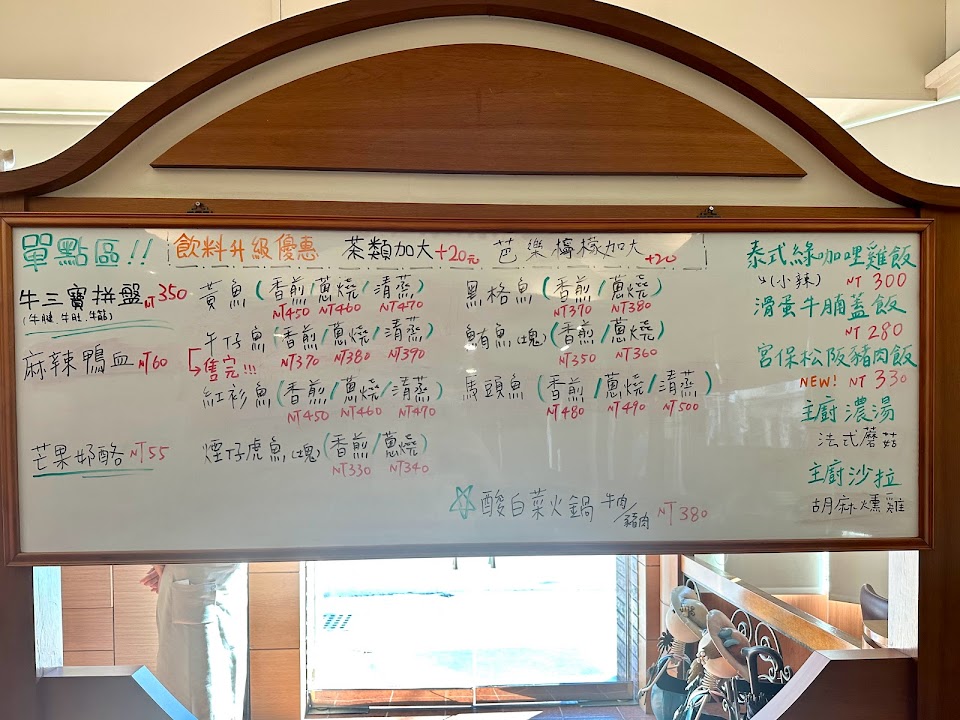 單點區!!
飲料升級優惠 茶類加大+20元 芭樂檸檬加大+20
牛三寶拼盤 NT350
(牛腱、牛肚、牛筋)
麻辣鴨血 NT60
芒果奶酪 NT55
黃魚(香煎/蔥燒/清蒸)
NT450 NT460 NT470
午仔魚(香煎/蔥燒/清蒸)
售完!!! NT370 NT380 NT390
紅衫魚(香煎/蔥燒/清蒸)
NT450 NT460 NT470
煙仔虎魚(塊)(香煎/蔥燒)
NT330 NT340
黑格魚(香煎/蔥燒)
NT370 NT380
鮪魚(塊)(香煎/蔥燒)
NT350 NT360
馬頭魚(香煎/蔥燒/清蒸)
NT480 NT490 NT500
酸白菜火鍋 牛肉/豬肉 NT380
泰式綠咖哩雞飯
(小辣) NT300
滑蛋牛腩蓋飯
NT280
宮保松阪豬肉飯
NEW! NT330
主廚濃湯
法式蘑菇
主廚沙拉
胡麻燻雞